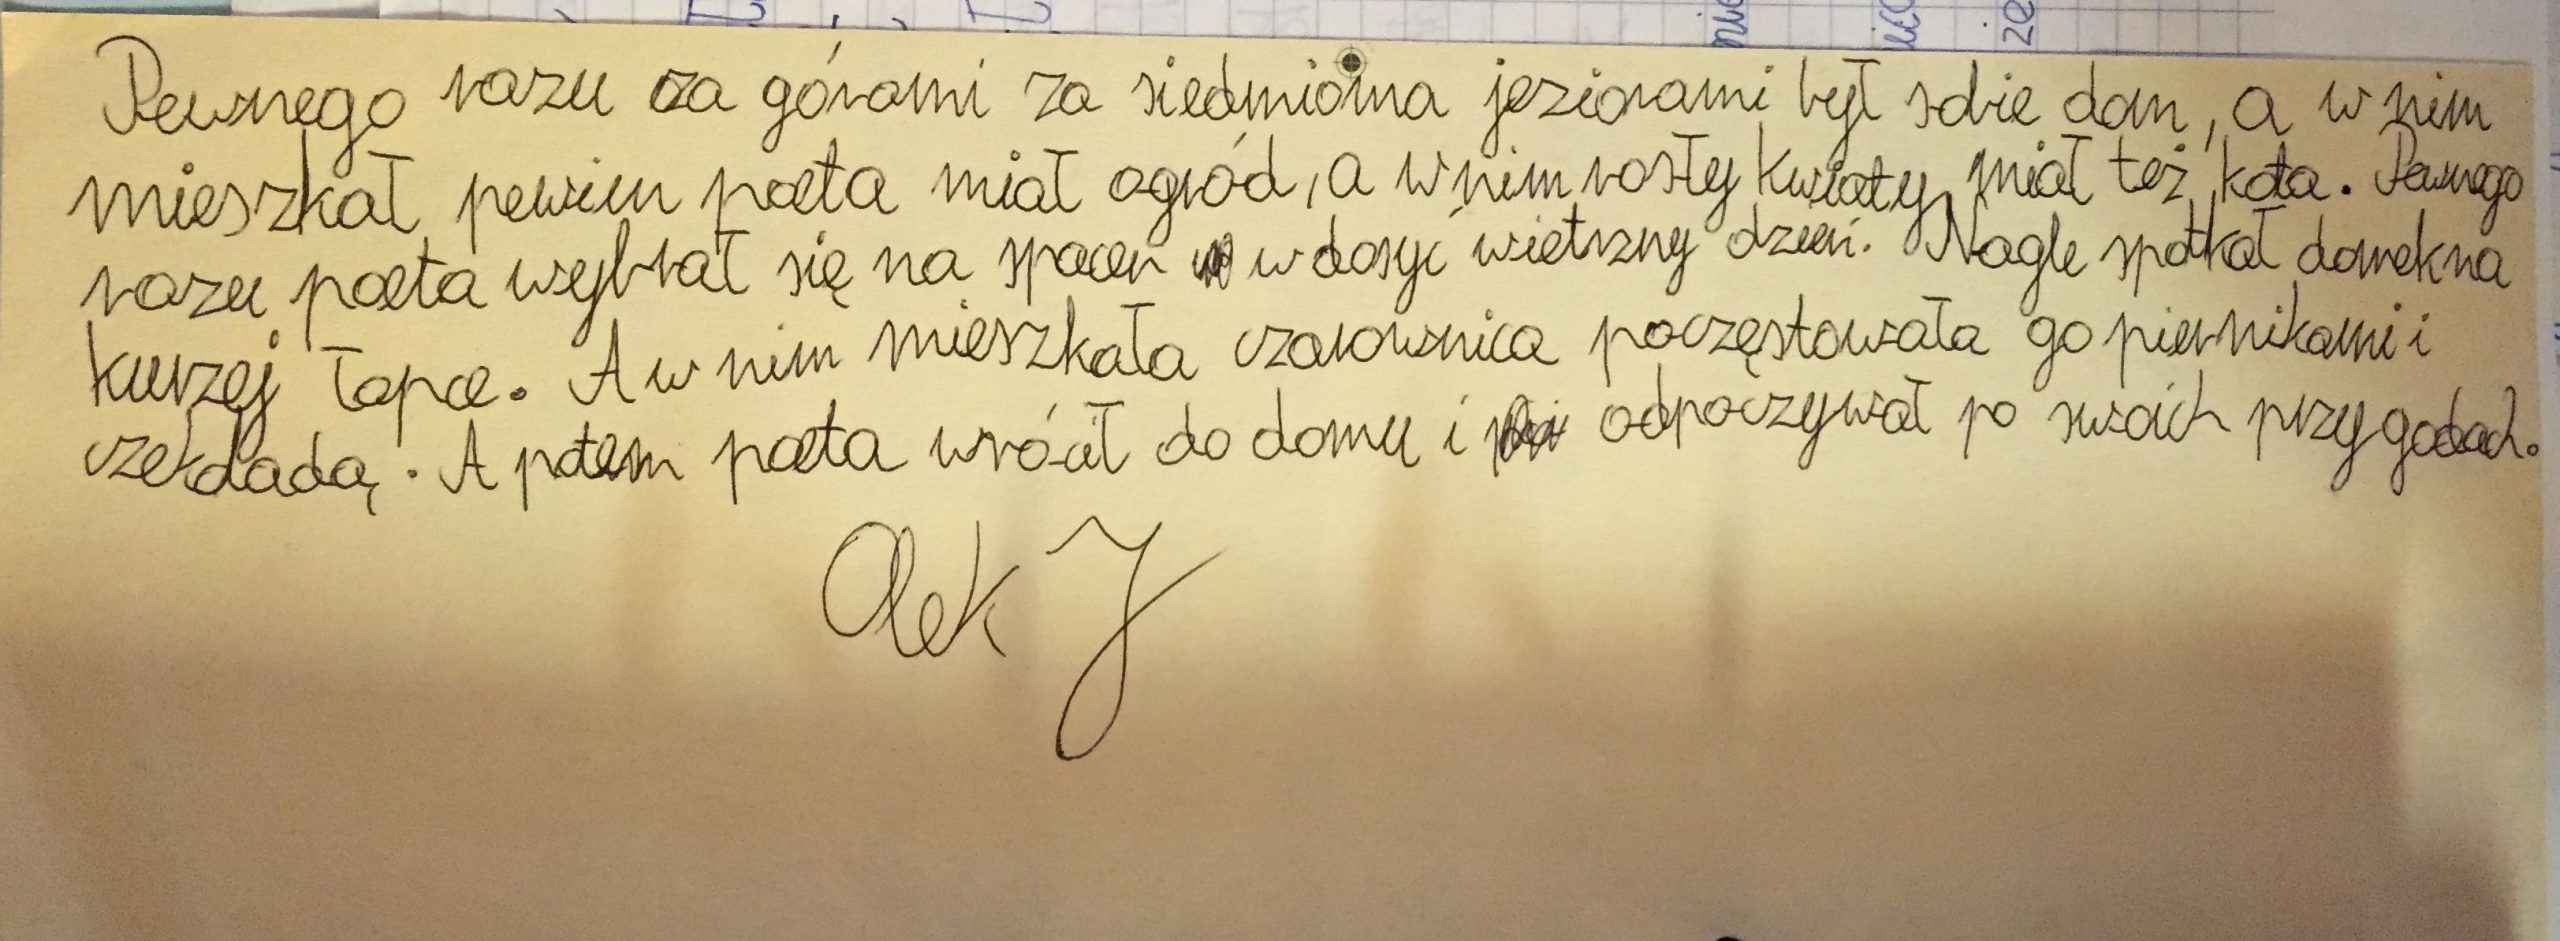 Pewnego razu za górami za siedmioma jeziorami był sobie dom, a w nim
mieszkał pewien poeta miał ogród, a w nim rosły kwiaty, miał też kota. Pewnego
razu poeta wybrał się na spacer w dosyć wietrzny dzień. Nagle spotkał domek na
kurzej łapce. A w nim mieszkała czarownica poczęstowała go piernikami i
czekoladą. A potem poeta wrócił do domu i odpoczywał po swoich przygodach.
Olek J